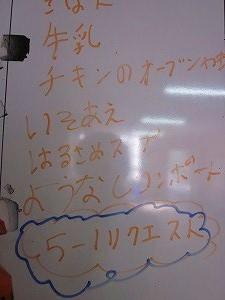 ごはん
牛乳
チキンのオーブンやき
いそあえ
はるさめスープ
ようなしコンポート
5-1リクエスト